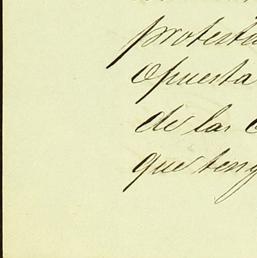 protesta
opuesta
de las
que teng